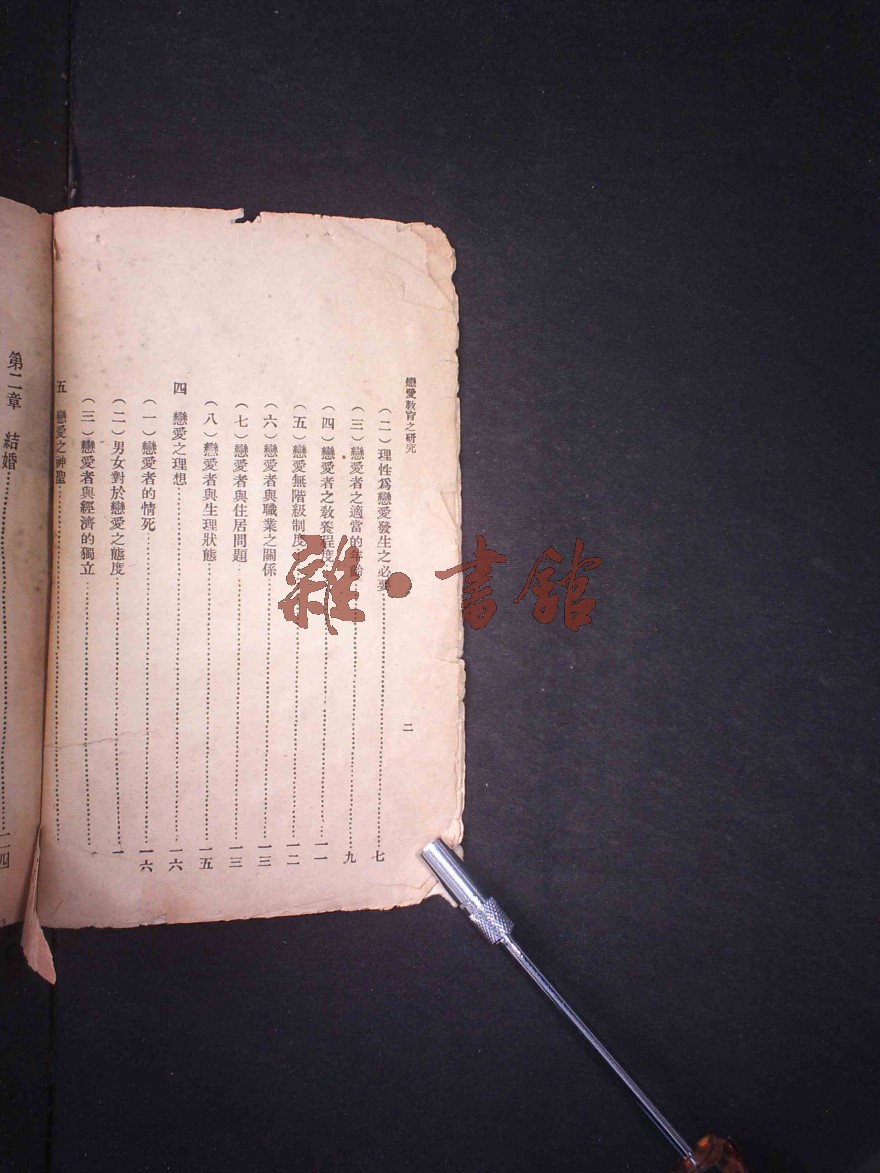 戀愛教育之研究
二
(二)理性爲戀愛發生之必要……七
(三)戀愛者之適當的年齡……九
(四)戀愛者之教養程度……一一
(五)戀愛無階級制度……一二
(六)戀愛者與職業之關係……一三
(七)戀愛者與住居問題……一三
(八)戀愛者與生理狀態……一五
四 戀愛之理想……一六
(一)戀愛者的情死……一六
(二)男女對於戀愛之態度……一
(三)戀愛者與經濟的獨立……
五 戀愛之神聖……
第二章 結婚……二四
雜·書館